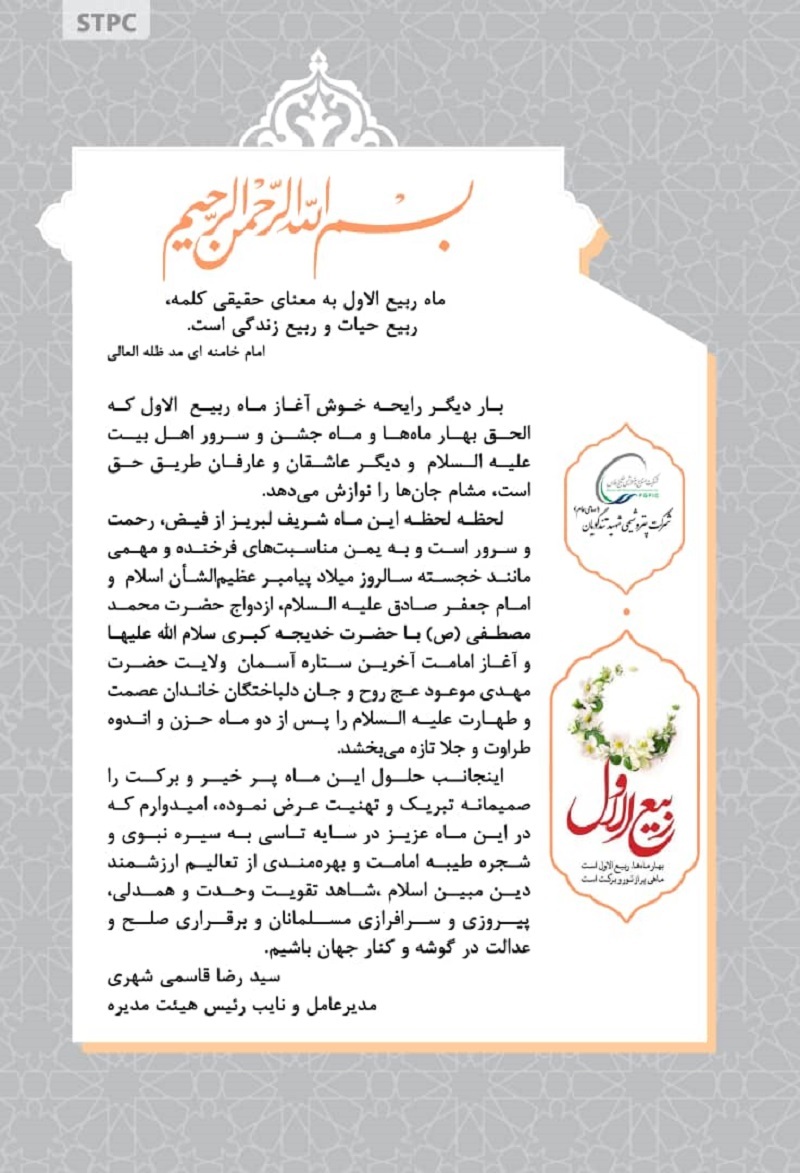 STPC
بسم الله الرحمن الرحیم
ماه ربیع الاول به معنای حقیقی کلمه،
ربیع حیات و ربیع زندگی است.
امام خامنه ای مد ظله العالی
بـار دیگـر رایحـه خـوش آغـاز مـاه ربیـع الاول کـه
الحـق بهـار ماه‌هـا و مـاه جشـن و سـرور اهـل بیـت
علیـه الـسلام و دیگـر عاشـقان و عارفـان طریـق حـق
است، مشام جان‌ها را نوازش می‌دهد.
لحظـه لحظـه ایـن مـاه شـریف لبریـز از فیـض، رحمـت
و سـرور اسـت و بـه یمـن مناسـبت‌های فرخنـده و مهمـی
ماننـد خجسـته سـالروز میلاد پیامبـر عظیم‌الشـأن اسلام و
امـام جعفـر صـادق علیـه الـسلام، ازدواج حضـرت محمـد
مصطفـی (ص) بـا حضـرت خدیجـه کبـری سلام الله علیهـا
و آغـاز امامـت آخریـن سـتاره آسـمان ولایـت حضـرت
مهـدی موعـود عـج روح و جـان دلباختگان خانـدان عصمـت
و طهـارت علیـه الـسلام را پـس از دو مـاه حـزن و انـدوه
طراوت و جلا تازه می‌بخشد.
اینجانـب حلـول ایـن مـاه پـر خیـر و برکـت را
صمیمانـه تبریـک و تهنیـت عـرض نمـوده، امیـدوارم کـه
در ایـن مـاه عزیـز در سـایه تاسـی بـه سـیره نبـوی و
شـجره طیبـه امامـت و بهره‌منـدی از تعالیـم ارزشـمند
دیـن مبیـن اسلام ،شـاهد تقویـت وحـدت و همدلـی،
پیـروزی و سـرافرازی مسـلمانان و برقـراری صلـح و
عدالت در گوشه و کنار جهان باشیم.
سید رضا قاسمی شهری
مدیرعامل و نایب رئیس هیئت مدیره
PGPIC
(سهامی عام)
شرکت پتروشیمی شهید تندگویان
ربیع الاول
بهار ماه‌ها، ربیع الاول است
ماهی پر از نور و برکت است